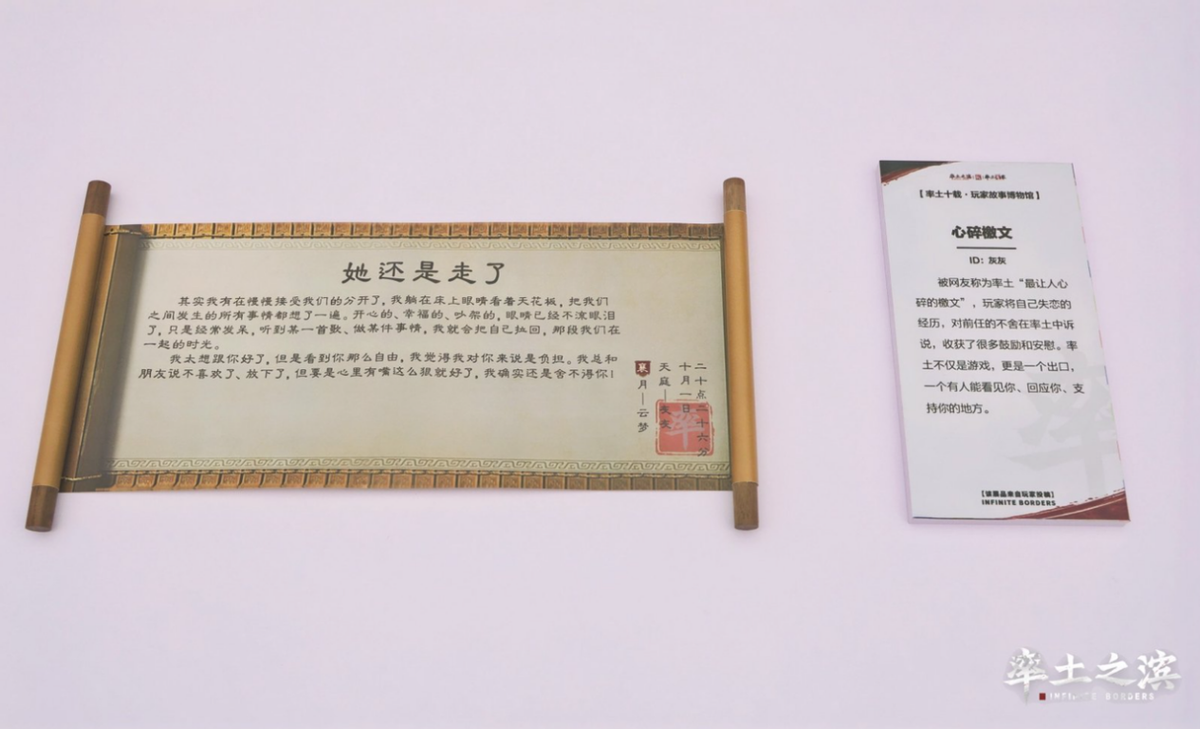 她还是走了
其实我有在慢慢接受我们的分开了，我躺在床上眼睛看着天花板，把我们
之间发生的所有事情都想了一遍。开心的、幸福的、吵架的，眼睛已经不流眼泪
了，只是经常发呆，听到某一首歌、做某件事情，我就会把自己扯回，那段我们在
一起的时光。
我太想跟你好了，但是看到你那么自由，我觉得我对你来说是负担。我总和
朋友说不喜欢了、放下了，但要是心里有嘴这么狠就好了，我确实还是舍不得你！
二十点二十六分
十月一日
天庭—
襄 月—云梦
率
【率土十载·玩家故事博物馆】
心碎檄文
ID：灰灰
被网友称为率土“最让人心
碎的檄文”，玩家将自己失恋的
经历，对前任的不舍在率土中诉
说，收获了很多鼓励和安慰。率
土不仅是游戏，更是一个出口，
一个有人能看见你、回应你、支
持你的地方。
【该展品来自玩家投稿】
INFINITE BORDERS
率土之滨
INFINITE BORDERS